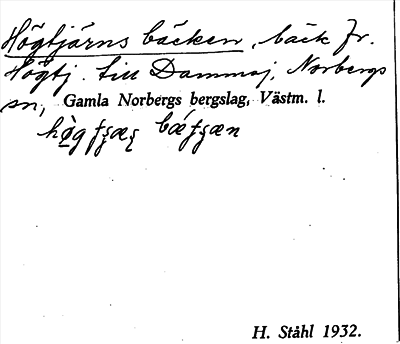 Högtjärns bäcken, bäck fr.
Högtj. till Dammsj, Norbergs
sn, Gamla Norbergs bergslag, Västm. l.
H. Ståhl 1932.